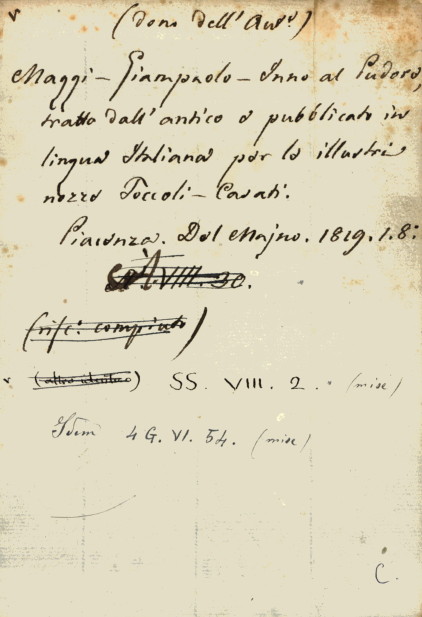 (dono dell'Aut.e)
Maggi - Giampaolo - Inno al Pudore,
tratto dall'antico e pubblicato in
lingua Italiana per le illustri
nozze Toccoli - Casati.
Piacenza. Del Majno. 1819. 1. 8:
VIII. 30.
(misc: compiuto)
(altro identico) SS. VIII. 2. (misc)
Idem 4 G. VI. 54. (misc)
C.